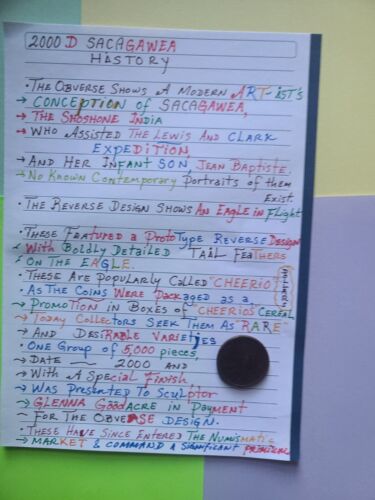 2000 D SACAGAWEA
HISTORY
· THE OBVERSE SHOWS A MODERN ART-IST'S
→ CONCEPTION of SACAGAWEA,
→ THE SHOSHONE INDIA
→ WHO ASSISTED THE LEWIS AND CLARK
EXPEDITION,
→ AND HER INFANT SON, JEAN BAPTISTE.
→ No KNOWN Contemporary PORTRAITS OF THEM
EXIST.
· THE REVERSE DESIGN SHOWS AN EAGLE IN FLIGHT
· THESE FEATURED A PROTOTYPE REVERSE DESIGN
→ WITH BOLDLY DETAILED TAIL FEATHERS
→ ON THE EAGLE.
· THESE ARE POPULARLY CALLED "CHEERIO"
· AS THE COINS WERE PACKAGED AS A
→ PROMOTION IN BOXES OF "CHEERIOS" CEREAL
→ TODAY COLLECTORS SEEK THEM AS RARE
→ AND DESIRABLE VARIETIES
· ONE GROUP OF 5,000 pieces,
→ DATE 2000 AND
→ WITH A SPECIAL FINISH
→ WAS PRESENTED TO SCULPTOR
→ GLENNA GOODACRE IN PAYMENT
→ FOR THE OBVERSE DESIGN.
· THESE HAVE SINCE ENTERED THE NUMISMATIC
→ MARKET & COMMAND A SIGNIFICANT PREMIUM